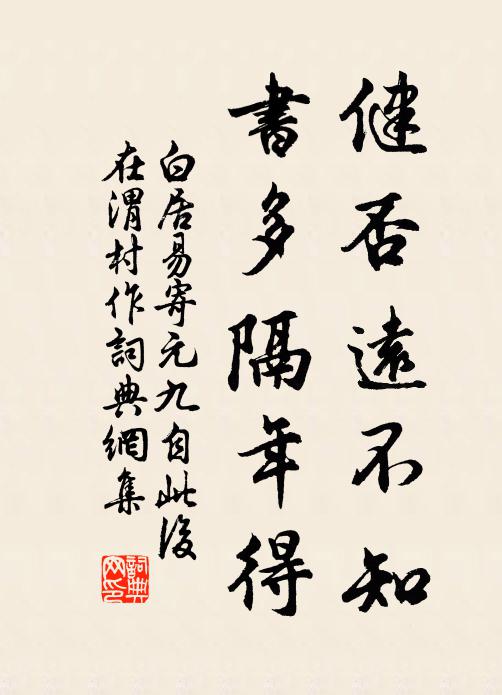 健否遠不知
書多隔年得
白居易寄元九自此後
在渭村作詞典網集
詞典网印